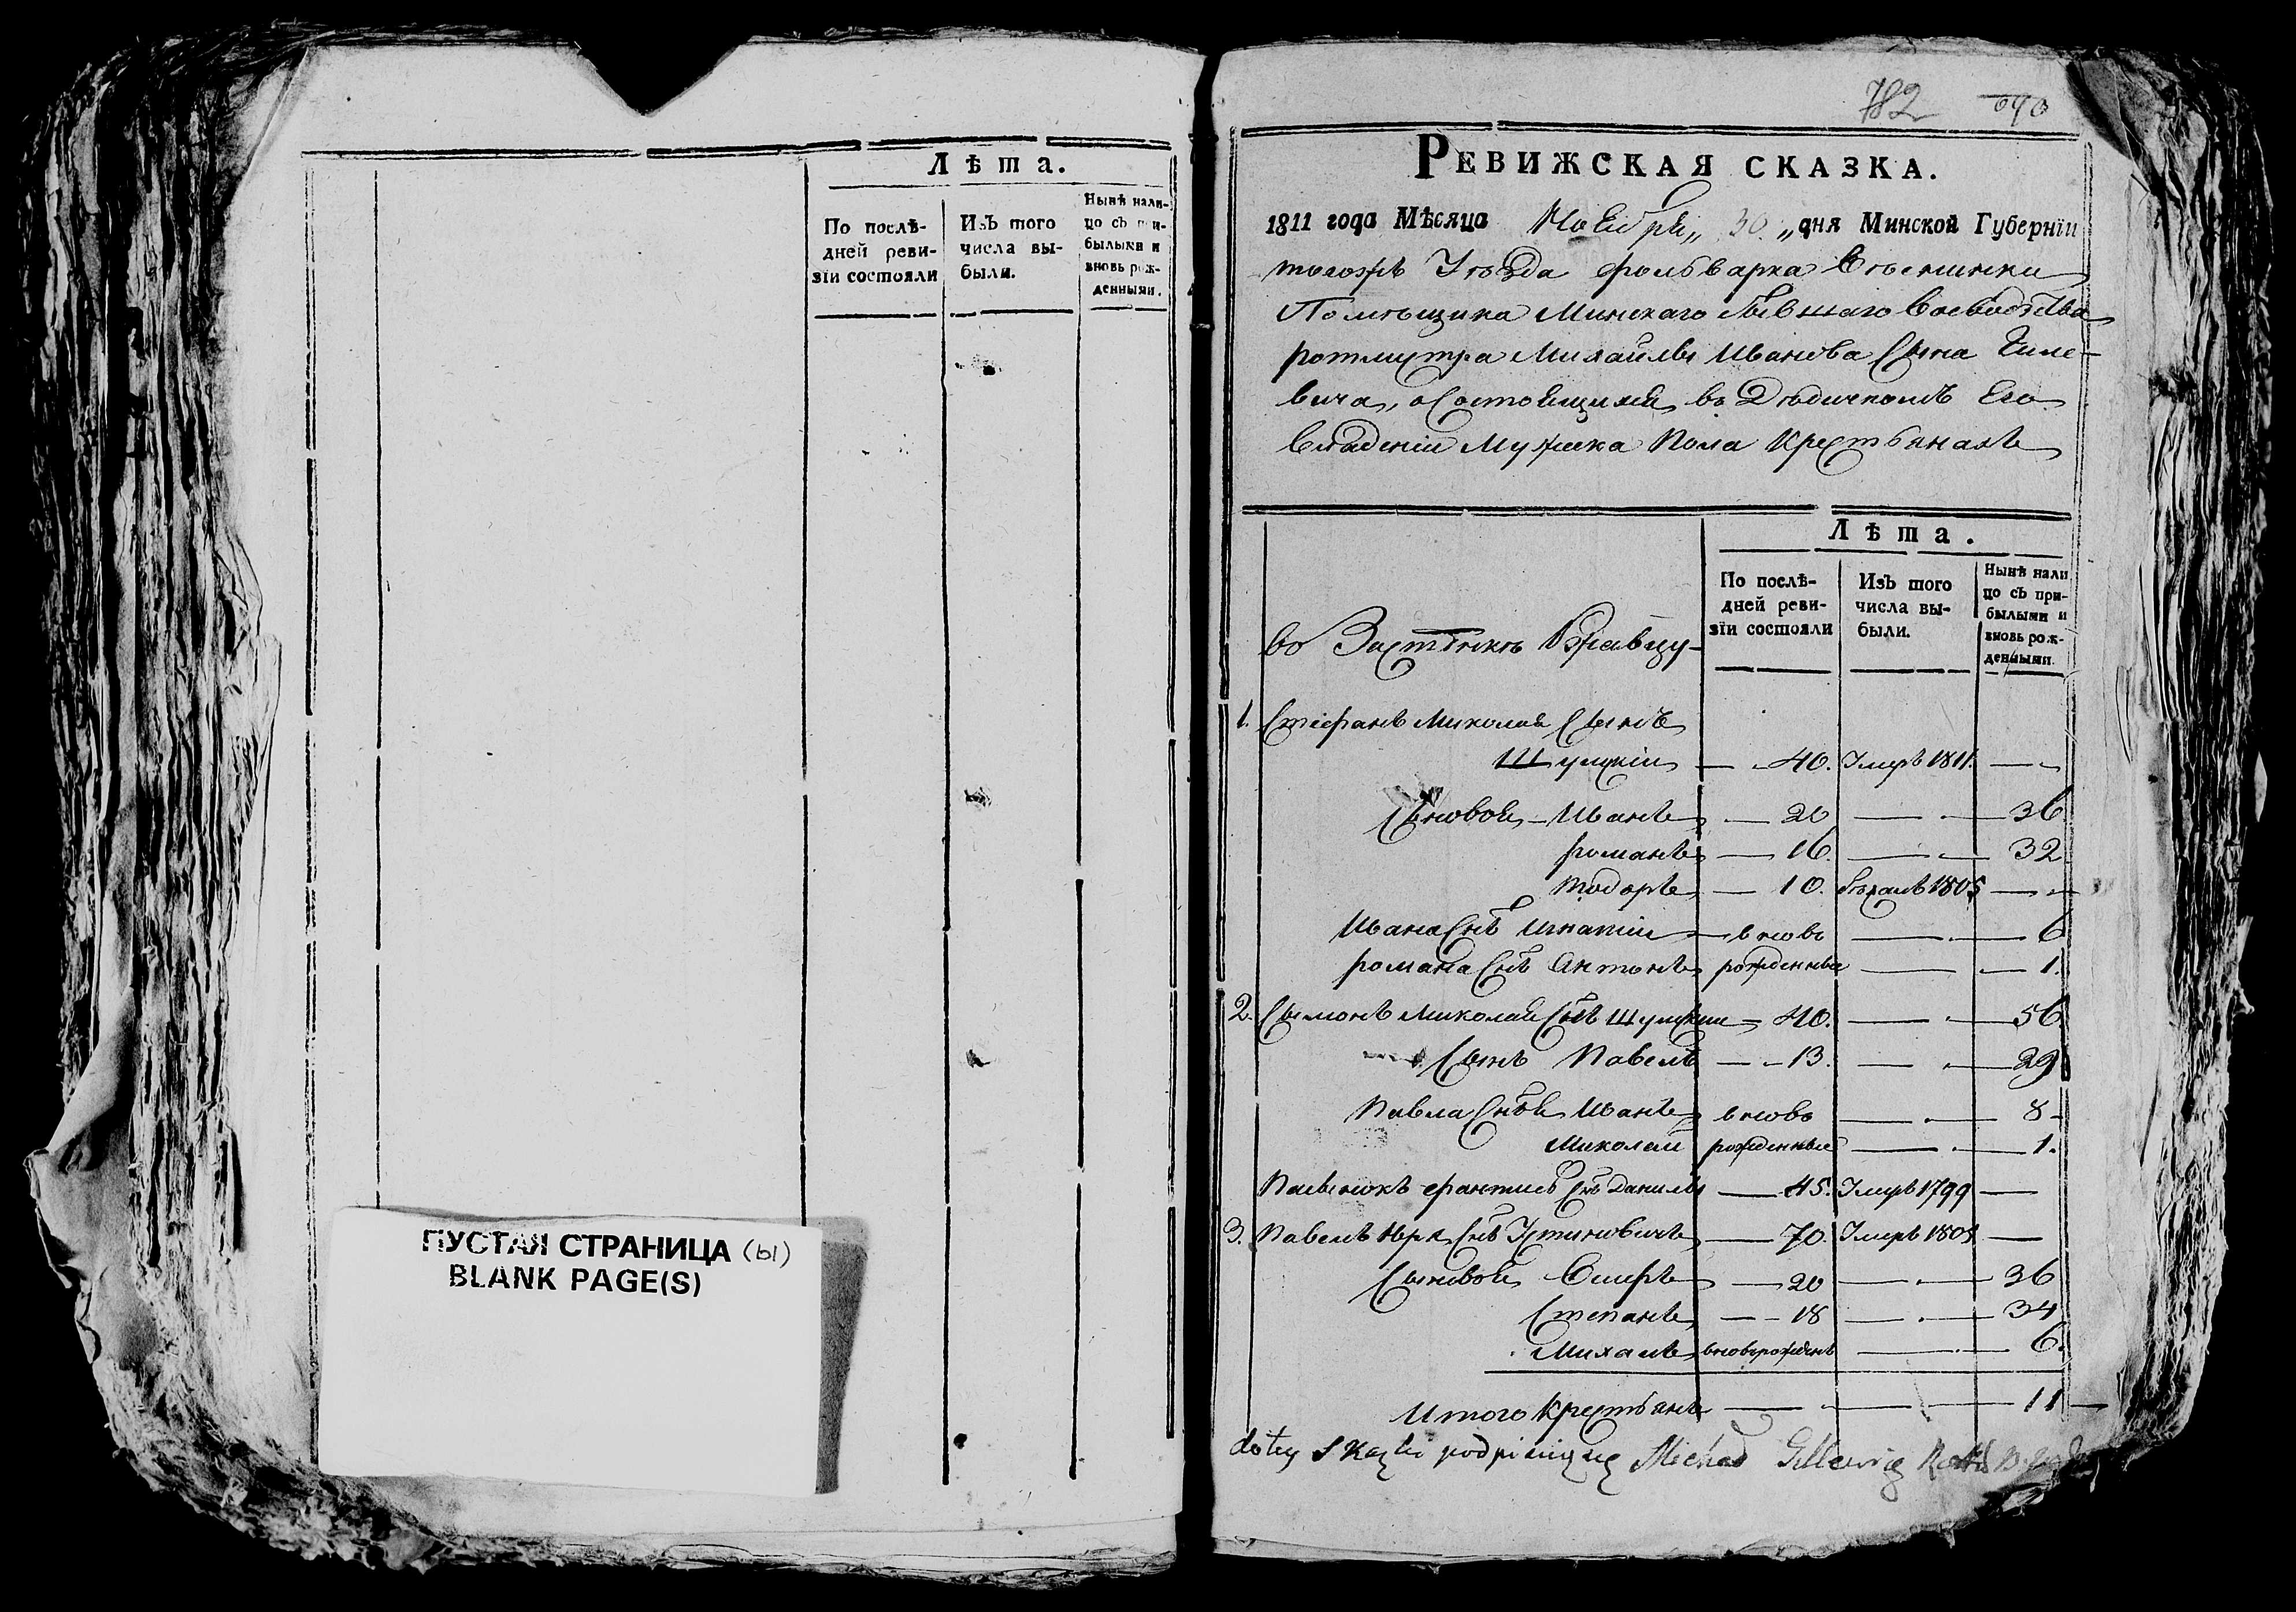 Лѣта.
По послѣ-
дней реви-
зїи состояли
Изъ того
числа вы-
были.
Нынѣ нали-
цо съ при-
былыми и
вновь рож-
денными.
ПУСТАЯ СТРАНИЦА (Ы)
BLANK PAGE(S)
782
РЕВИЖСКАЯ СКАЗКА.
1811 года Мѣсяца Ноября „ 30 „ дня Минской Губернїи
тогожъ Уѣзда фольварка
Помѣщика Минскаго бывшаго Воеводства
ротмистра Михайлы Иванова Сына Гиле-
вича, о Состоящихъ въ Дѣдичномъ Его
Владеніи Мужеска Пола Крестьянахъ
Лѣта.
По послѣ-
дней реви-
зїи состояли
Изъ того
числа вы-
были.
Нынѣ нали
цо съ при-
былыми и
вновь рож-
денными.
Во Застѣнкѣ
1. Стефанъ Миколая Сынъ
Шумскій — 40. Умеръ 1811. —
Сыновья — Иванъ — 20 — 36
романъ — 16. — 32
тодоръ — 10. 1805 —
Ивана Снъ Игнатій — вновь — 6
романа Снъ Антонъ рожденные — 1.
2. Сымонъ Миколая Снъ Шумскій — 40. — 56.
Сынъ Павелъ — 13. — 29
Павла Снвя Иванъ вновь — 8
Миколай рожденные — 1.
Данилы — 45. Умеръ 1799 —
3. Павелъ Юрк Снъ Устиновичъ — 70. Умеръ 1805 —
Сыновья — 20 — 36
Степанъ — 18 — 34
Михалъ вноврожденъ — 6.
Итого Крестьянъ — 11 —
do tey Skazki podpisuię się Michał Gillewicz